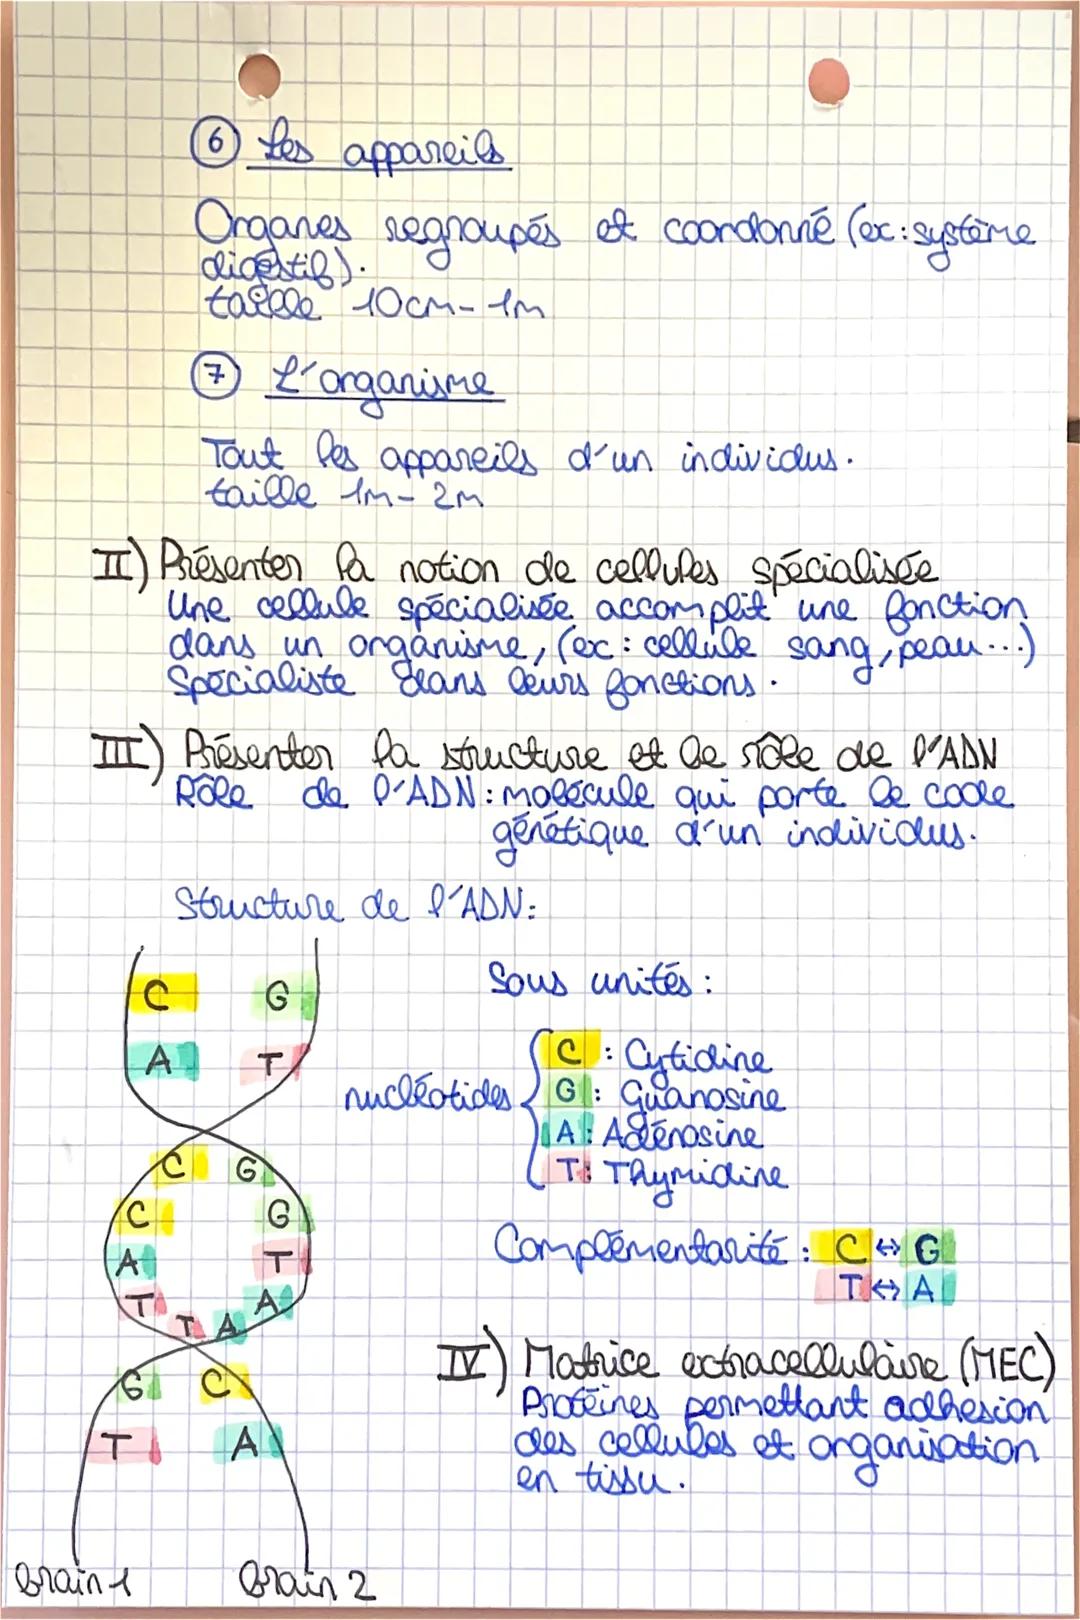 6 Les appareils
Organes regroupés et coordonné (ex: système
digéstif).
taille 10cm - 1m
7 L'organisme
Tout les appareils d'un individus.
taille 1m - 2m
II) Présenter la notion de cellules spécialisée
Une cellule spécialisée accomplit une fonction
dans un organisme, (ex: cellule sang, peau...)
Spécialiste dans leurs fonctions.
III) Présenter la structure et le rôle de l'ADN
Rôle de l'ADN: molécule qui porte le code
génétique d'un individus.
Structure de l'ADN:
C G
A T
C G
C G
A T
T A
T A
G C
T A
Brain 1 Brain 2
Sous unités:
nucléotides
C: Cytidine
G: Guanosine
A: Adénosine
T: Thymidine
Complémentarité: C ↔ G
T ↔ A
IV) Matrice extracellulaire (MEC)
Protéines permettant adhésion
des cellules et organisation
en tissu.